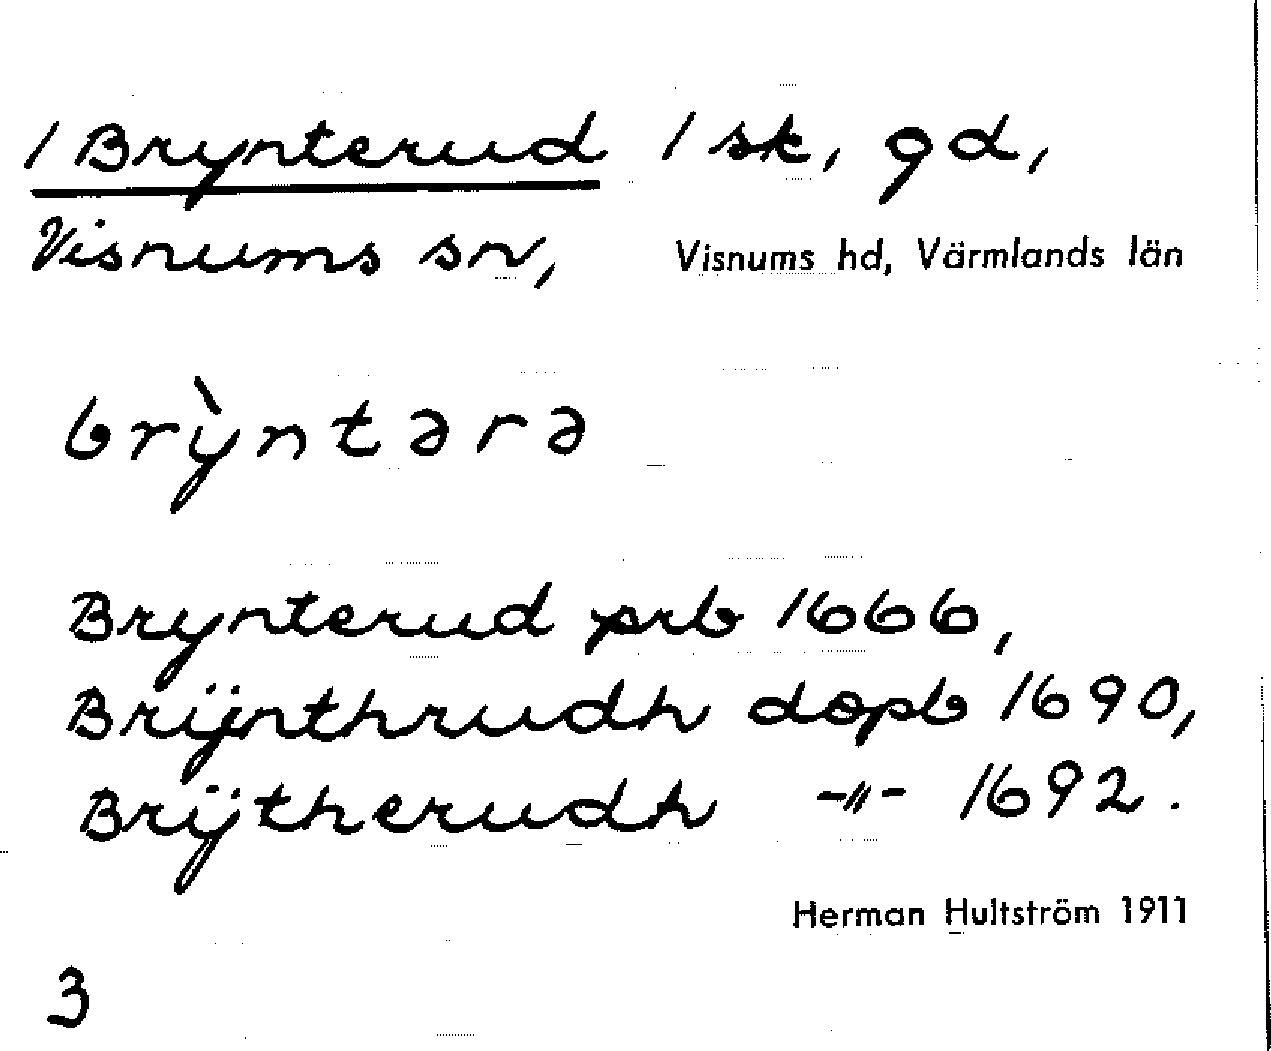 / Brynterud / sk, gd,
Visnums sn, Visnums hd, Värmlands län
brỳntərə
Brynterud prb 1666,
Brÿnthrudh dopb 1690,
Brÿtherudh -"- 1692.
Herman Hultström 1911
3